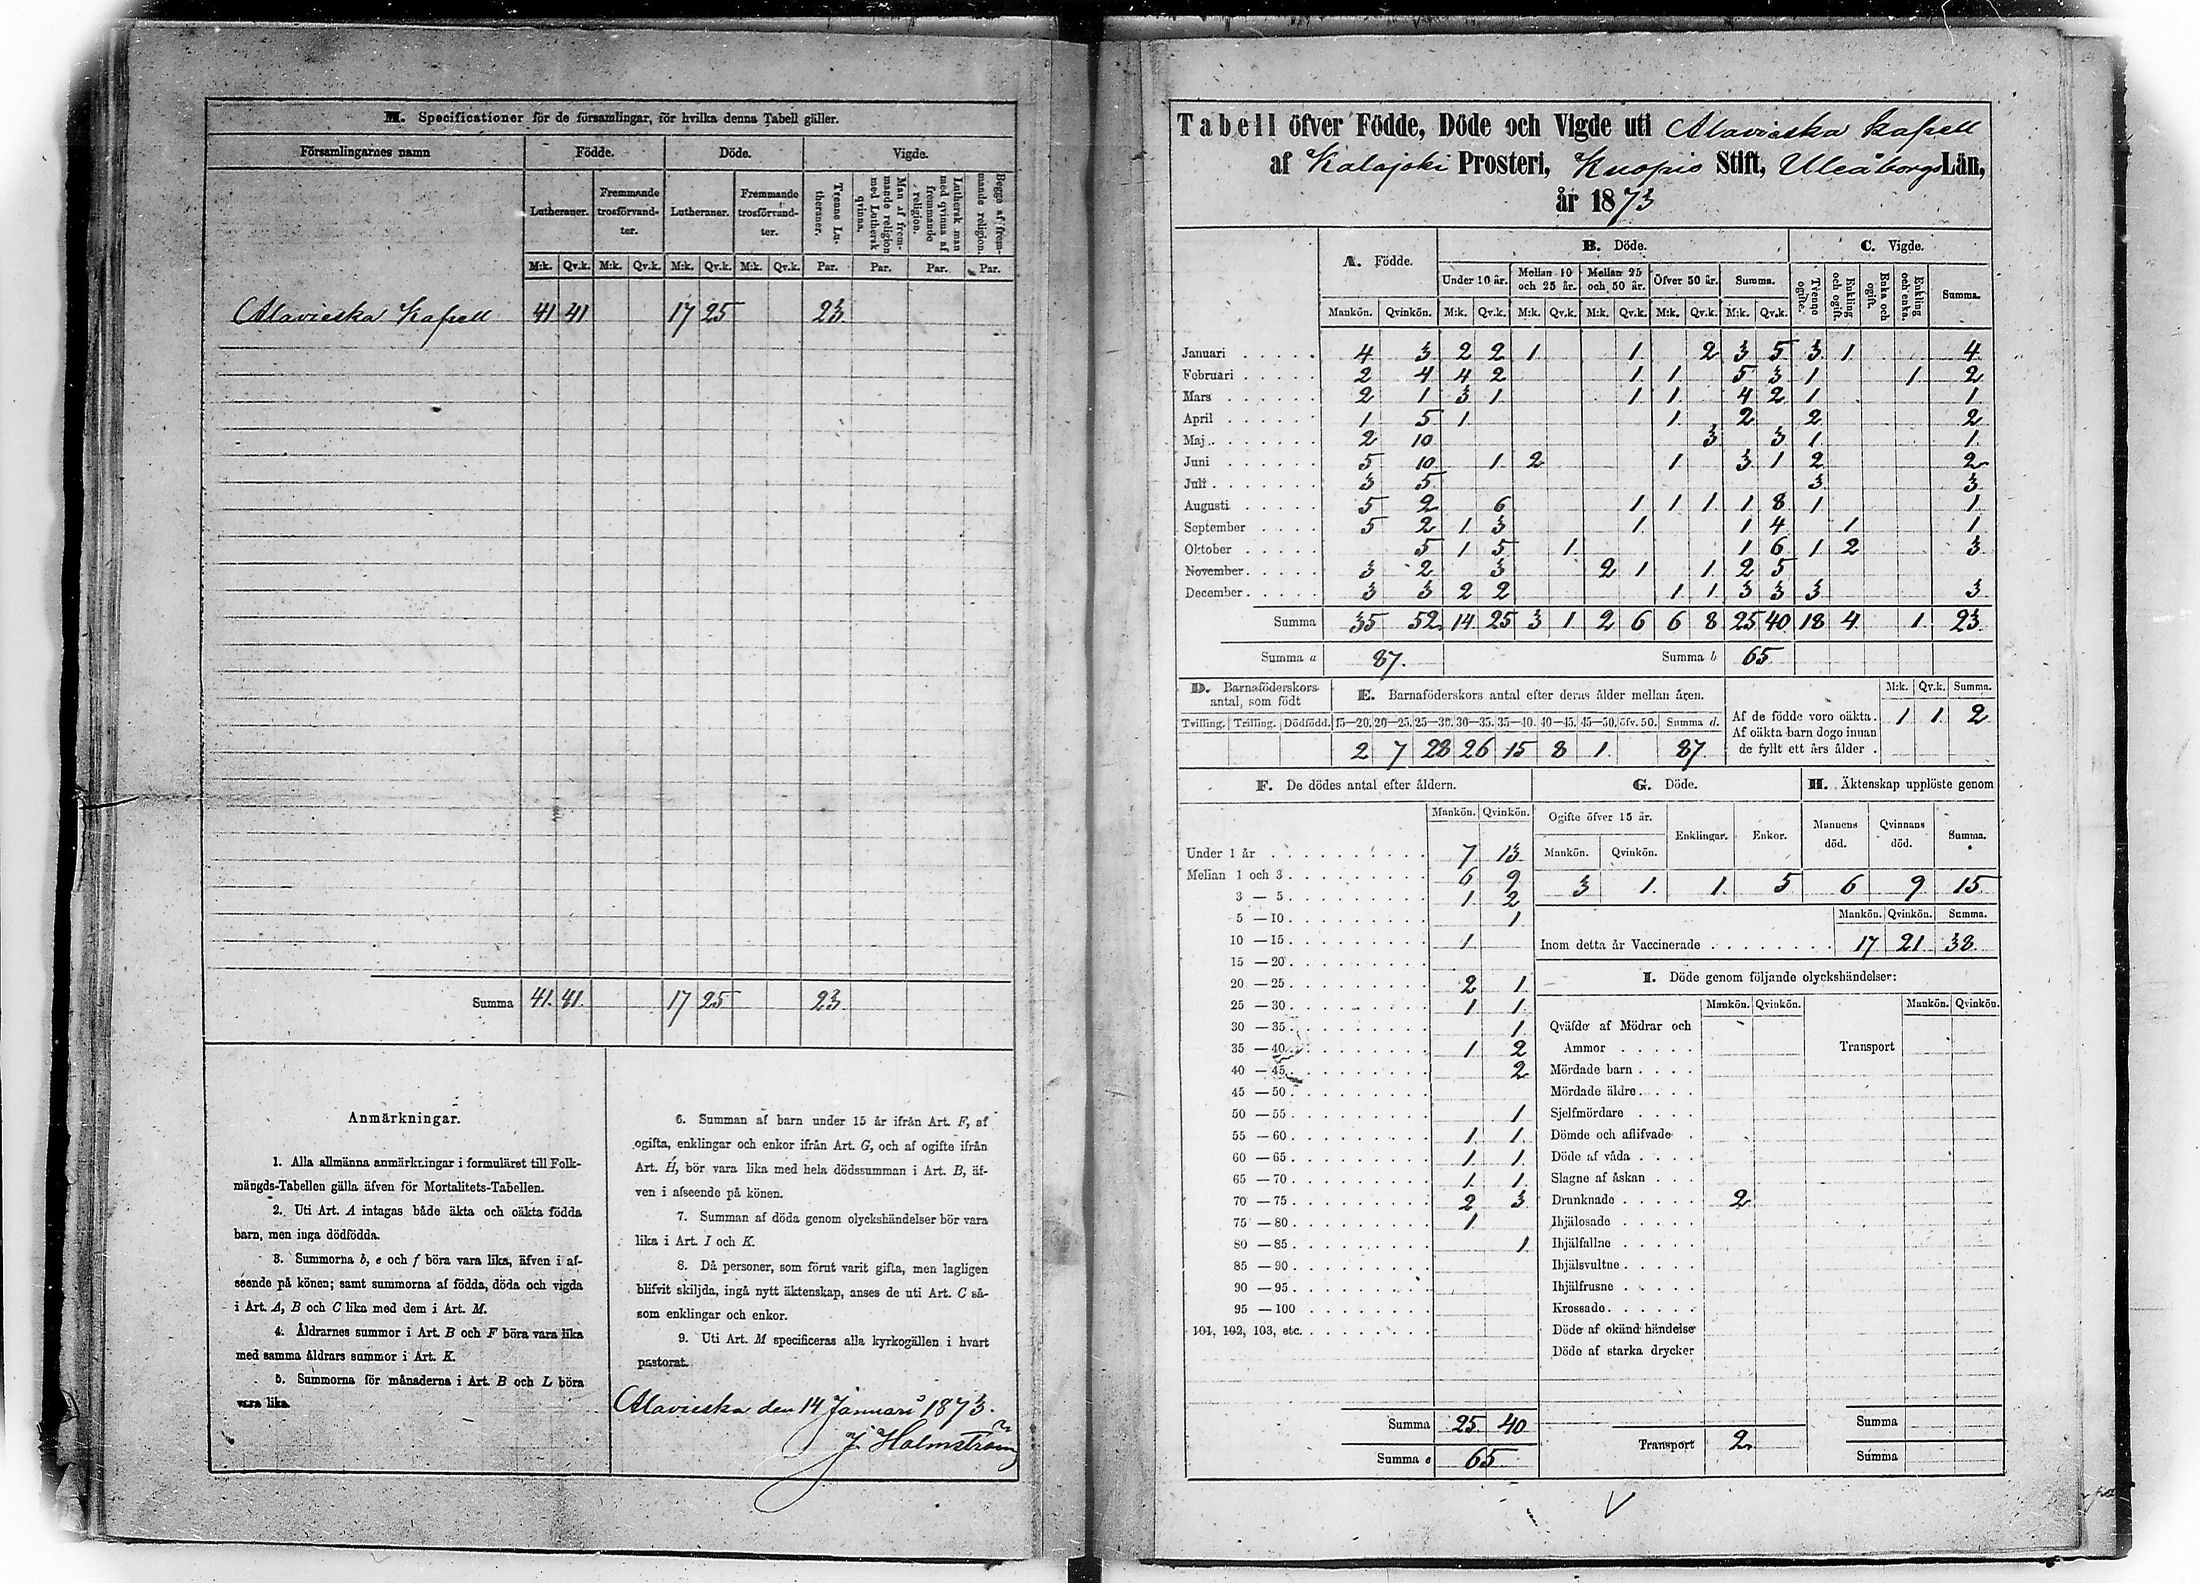 M. Specificationer för de församlingar, för hvilka denna Tabell gäller.
Församlingarnes namn Födde. Döde. Vigde.
Lutheraner. Fremmande trosförvandter. Lutheraner. Fremmande trosförvandter. Tvenne Lutheraner. Man af fremmande religion med Luthersk qvinna. Luthersk man med qvinna af fremmande religion. Begge af fremmande religion.
M:k. Qv.k. M:k. Qv.k. M:k. Qv.k. M:k. Qv.k. Par. Par. Par. Par.
Alavieska Kapell 41 41 17 25 23
Summa 41. 41. 17 25 23
Anmärkningar.
1. Alla allmänna anmärkningar i formuläret till Folk-
mängds-Tabellen gälla äfven för Mortalitets-Tabellen.
2. Uti Art. A intagas både äkta och oäkta födda
barn, men inga dödfödda.
3. Summorna b, e och f böra vara lika, äfven i af-
seende på könen; samt summorna af födda, döda och vigda
i Art. A, B och C lika med dem i Art. M.
4. Åldrarnes summor i Art. B och F böra vara lika
med samma åldrars summor i Art. K.
5. Summorna för månaderna i Art. B och L böra
vara lika.
6. Summan af barn under 15 år ifrån Art. F, af
ogifta, enklingar och enkor ifrån Art. G, och af ogifte ifrån
Art. H, bör vara lika med hela dödssumman i Art. B, äf-
ven i afseende på könen.
7. Summan af döda genom olyckshändelser bör vara
lika i Art. I och K.
8. Då personer, som förut varit gifta, men lagligen
blifvit skiljda, ingå nytt äktenskap, anses de uti Art. C så-
som enklingar och enkor.
9. Uti Art. M specificeras alla kyrkogällen i hvart
pastorat.
Alavieska den 14 Januari 1873.
J. Holmström
Tabell öfver Födde, Döde och Vigde uti Alavieska Kapell
af Kalajoki Prosteri, Kuopio Stift, Uleåborgs Län,
år 1873
A. Födde. B. Döde. C. Vigde.
Under 10 år. Mellan 10 och 25 år. Mellan 25 och 50 år. Öfver 50 år. Summa. Tvenne ogifte. Enkling och ogift. Enka och ogift. Enkling och enka. Summa.
Mankön. Qvinkön. M:k. Qv.k. M:k. Qv.k. M:k. Qv.k. M:k. Qv.k. M:k. Qv.k.
Januari 4 3 2 2 1 1 2 3 5 3 1 4
Februari 2 4 4 2 1 1 5 3 1 1 2
Mars 2 1 3 1 1 1 4 2 1 1
April 1 5 1 1 2 2 2
Maj 2 10 3 3 1 1
Juni 5 10 1 2 1 3 1 2 2
Juli 3 5 3 3
Augusti 5 2 6 1 1 1 1 8 1 1
September 5 2 1 3 1 1 4 1 1
Oktober 5 1 5 1 1 6 1 2 3
November 3 2 3 2 1 1 2 5
December 3 3 2 2 1 1 3 3 3 3
Summa 35 52 14 25 3 1 2 6 6 8 25 40 18 4 1 23
Summa a 87. Summa b 65
D. Barnaföderskors antal, som födt E. Barnaföderskors antal efter deras ålder mellan åren. M:k. Qv.k. Summa.
Tvilling. Trilling. Dödfödd. 15—20. 20—25. 25—30. 30—35. 35—40. 40—45. 45—50. öfv. 50. Summa d.
2 7 28 26 15 8 1 87
Af de födde voro oäkta. 1 1 2
Af oäkta barn dogo innan
de fyllt ett års ålder .
F. De dödes antal efter åldern.
Mankön. Qvinkön.
Under 1 år 7 13
Mellan 1 och 3 6 9
3 — 5 1 2
5 — 10 1
10 — 15 1
15 — 20
20 — 25 2 1
25 — 30 1 1
30 — 35 1
35 — 40 1 2
40 — 45 2
45 — 50
50 — 55 1
55 — 60 1 1
60 — 65 1 1
65 — 70 1 1
70 — 75 2 3
75 — 80 1
80 — 85 1
85 — 90
90 — 95
95 — 100
101, 102, 103, etc.
Summa 25 40
Summa e 65
G. Döde.
Ogifte öfver 15 år. Enklingar. Enkor.
Mankön. Qvinkön.
3 1 1 5
H. Äktenskap upplöste genom
Mannens död. Qvinnans död. Summa.
6 9 15
Mankön. Qvinkön. Summa.
Inom detta år Vaccinerade 17 21 38
I. Döde genom följande olyckshändelser:
Mankön. Qvinkön. Mankön. Qvinkön.
Qväfde af Mödrar och
Ammor Transport
Mördade barn
Mördade äldre
Sjelfmördare
Dömde och aflifvade
Döde af våda
Slagne af åskan
Drunknade 2
Ihjälosade
Ihjälfallne
Ihjälsvultne
Ihjälfrusne
Krossade
Döde af okänd händelse
Döde af starka drycker
Summa
Transport 2
Summa